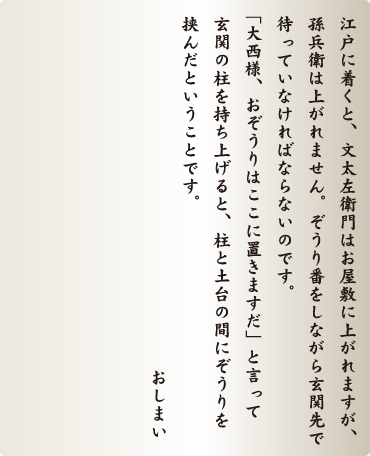 江戸に着くと、文太左衛門はお屋敷に上がれますが、
孫兵衛は上がれません。ぞうり番をしながら玄関先で
待っていなければならないのです。
「大西様、おぞうりはここに置きますだ」と言って
玄関の柱を持ち上げると、柱と土台の間にぞうりを
挟んだということです。
おしまい